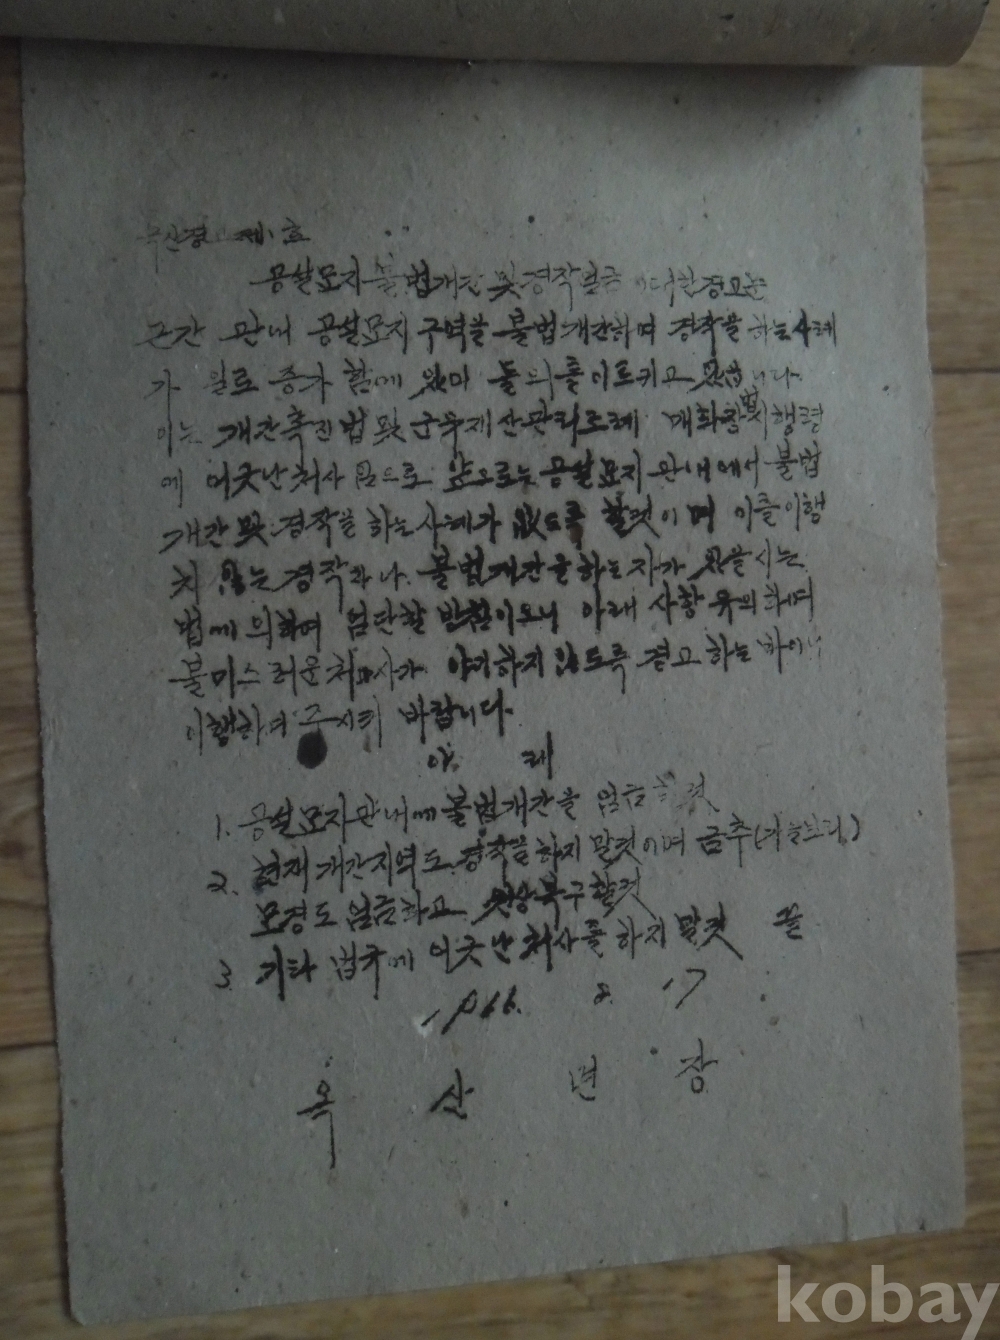 제1호
공설묘지 불법개간 및 경작일금 에 대한 경고문
근간 관내 공설묘지 구역을 불법개간하며 경작을 하는 사례
가 일로 증가 함에 물의를 이르키고 있습니다.
이는 개간촉진법 및 군유재산관리조례 매화장 및 시행령
에 어긋난 처사 임으로 앞으로는 공설묘지 관내에서 불법
개간 및 경작을 하는 사례가 없도록 할것이며 이를 이행
치 않는 경작자나 불법개간을 하는 자가 있을시는
법에 의하여 엄단할 방침이오니 아래 사항 유의하여
불미스러운 처사가 야기하지 않도록 경고하는 바이니
이행하여 주시기 바랍니다.
아 래
1. 공설묘지 관내에 불법개간을 엄금할것
2. 현재 개간지역도 경작을 하지 말것이며 금추(가을보리)
모경도 엄금하고 원상복구할것
3. 기타 법규에 어긋난 처사를 하지 말것 끝
1966. 8. 17
옥 산 면 장
kobay